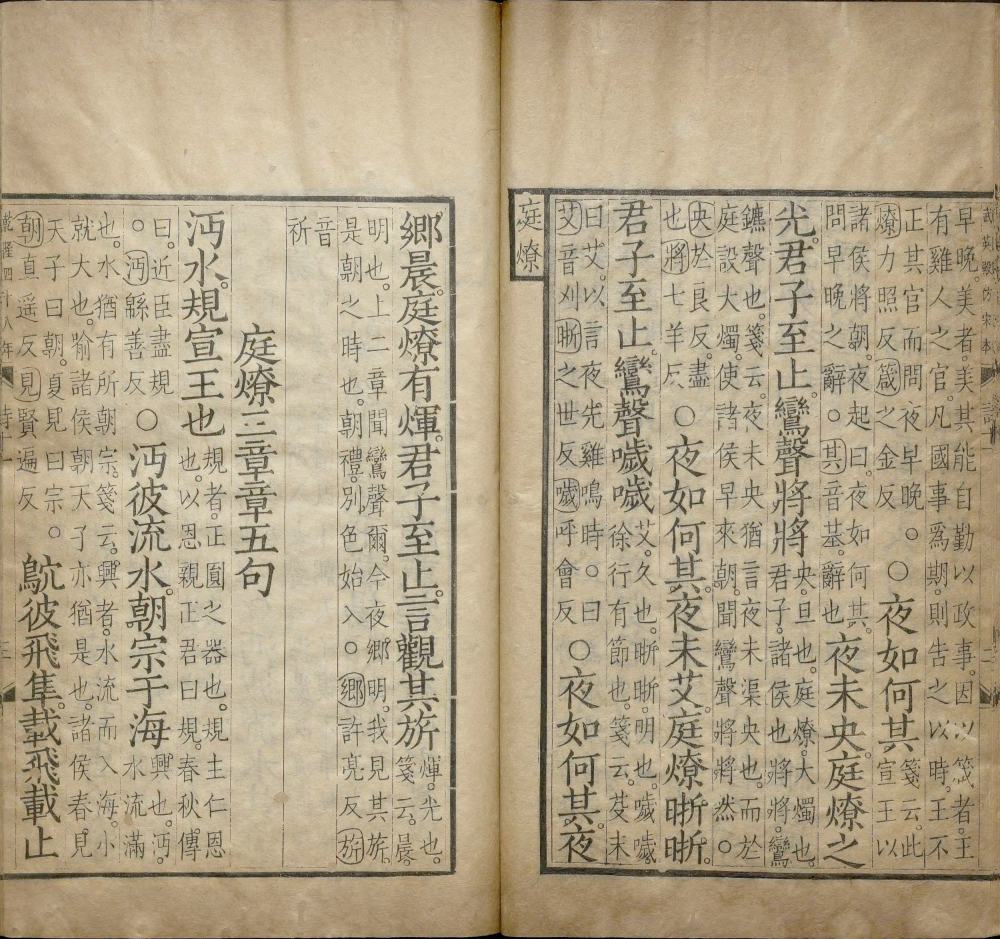 武英殿仿宋本
詩十一
二
早晚。美者。美其能自勤以政事。因以箴者。王
有雞人之官。凡國事爲期。則告之以時。王不
正其官而問夜早晚。○
燎力照反箴之金反
○夜如何其
箋云。此
宣王以
諸侯將朝。夜起曰。夜如何其。
問早晚之辭。○其音基。辭也
夜未央。庭燎之
光。君子至止。鸞聲將將
央。旦也。庭燎。大燭也。
君子。諸侯也。將將。鸞
鑣聲也。箋云。夜未央猶言夜未渠央也。而於
庭設大燭。使諸侯早來朝。聞鸞聲將將然。○
央於良反。盡
也將七羊反
○夜如何其。夜未艾。庭燎晣晣。
君子至止。鸞聲噦噦
艾。久也。晣晣。明也。噦噦。
徐行有節也。箋云。芟末
曰艾。以言夜先雞鳴時。○曰
艾音刈晣之世反噦呼會反
○夜如何其。夜
庭燎
鄉晨。庭燎有煇。君子至止。言觀其旂
煇。光也。
箋云。晨。
明也。上二章聞鸞聲爾。今夜鄉明。我見其旂。
是朝之時也。朝禮。別色始入。○鄉許亮反旂
音
祈
庭燎三章章五句
沔水。規宣王也
規者。正圓之器也。規主仁恩
也。以恩親正君曰規。春秋傳
曰。近臣盡規
○沔緜善反
○沔彼流水。朝宗于海
興也。沔。
水流滿
也。水猶有所朝宗。箋云。興者。水流而入海。小
就大也。喻諸侯朝天子亦猶是也。諸侯春見
天子曰朝。夏見曰宗。○
朝直遥反見賢遍反
鴥彼飛隼。載飛載止
乾隆四十八年
詩十一
二